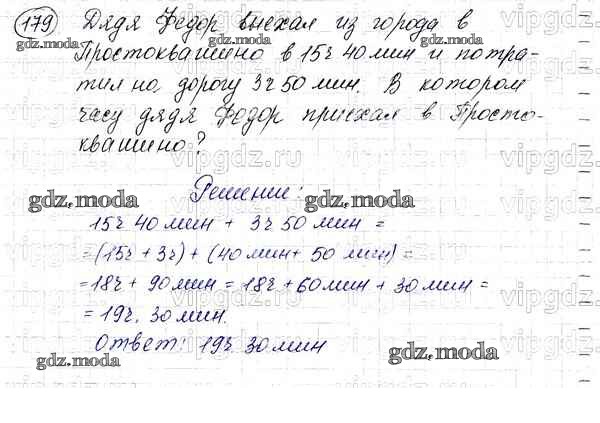 179 Дядя Федор выехал из города в
Простоквашино в 15ч 40мин и потра-
тил на дорогу 3ч 50 мин. В котором
часу дядя Федор приехал в Просто-
квашино?
Решение:
15ч 40мин + 3ч 50 мин =
=(15ч + 3ч) + (40мин + 50 мин) =
=18ч + 90мин = 18ч + 60мин + 30 мин =
= 19ч. 30мин.
Ответ: 19ч 30мин
gdz.moda
gdz.moda
gdz.moda
gdz.moda
vipgdz.ru
vipgdz.ru
vipgdz.ru